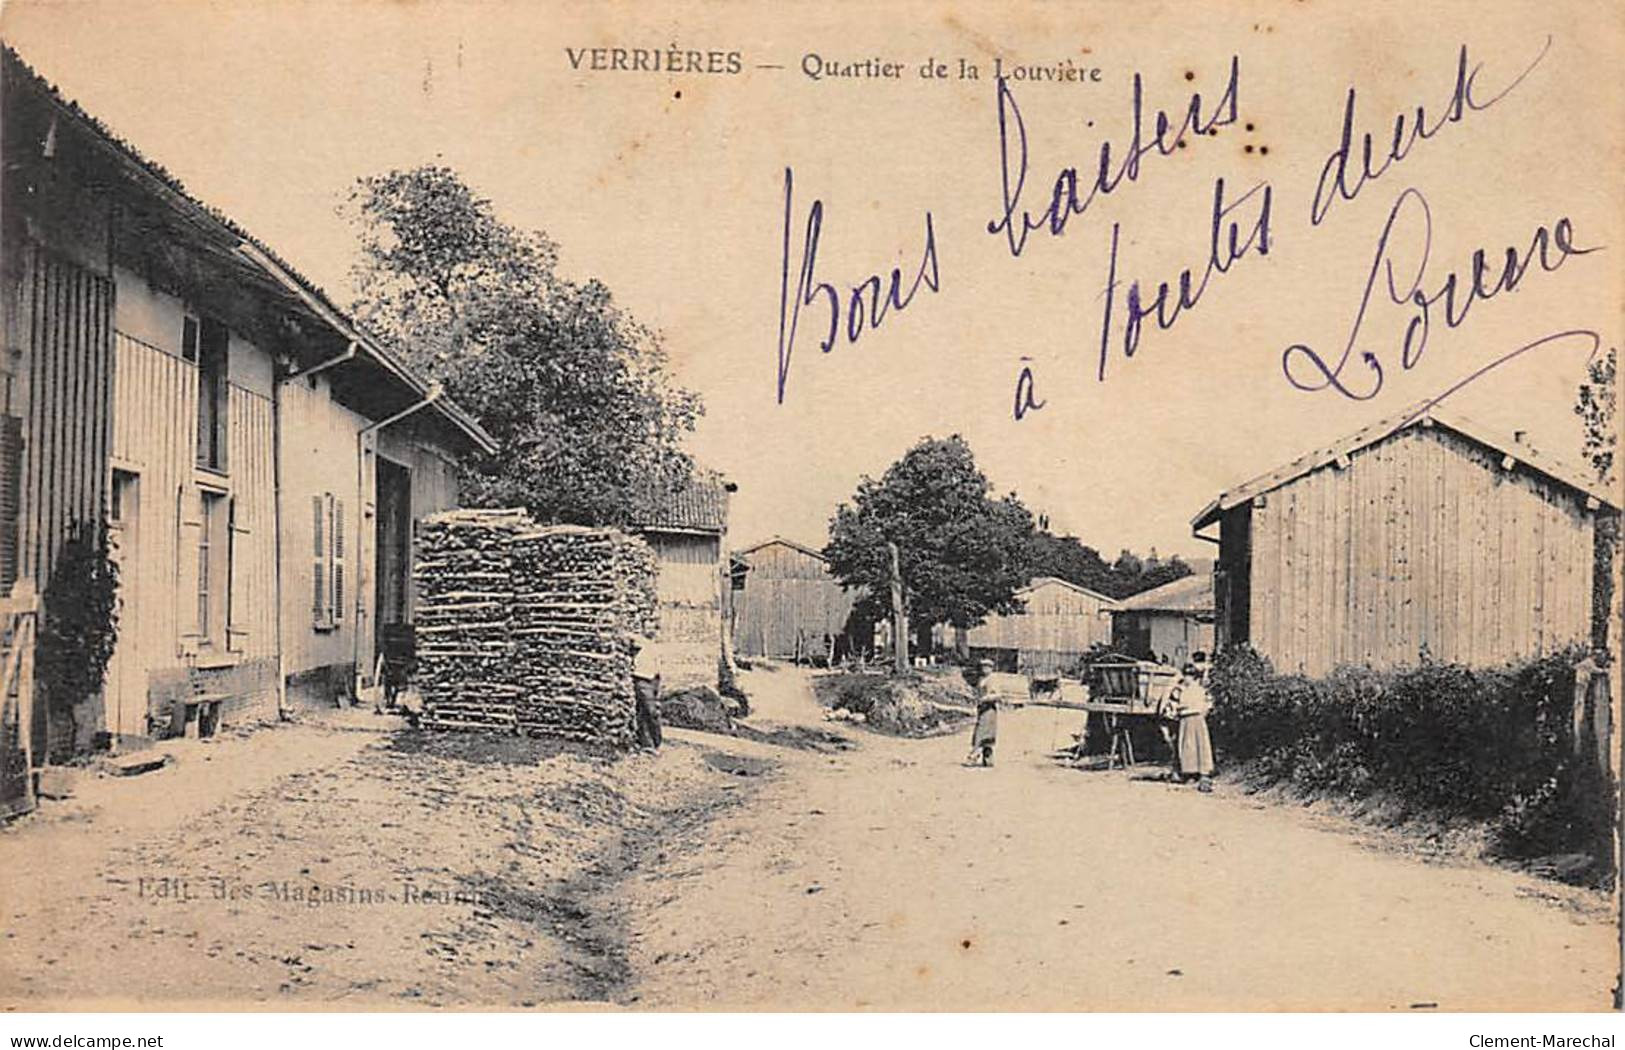 VERRIÈRES — Quartier de la Louvière
Bons baisers
à toutes deux
Edit. des Magasins-Réunis
delcampe.net
Clement-Marechal